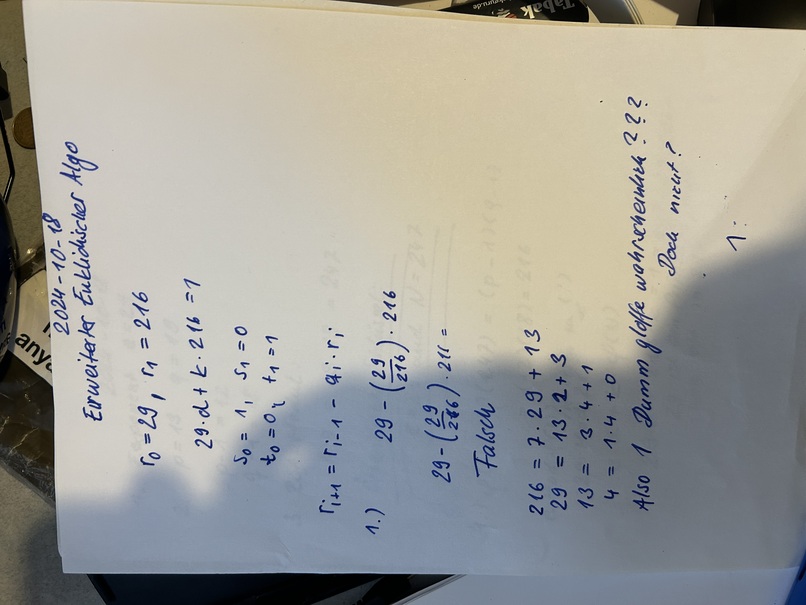 2024-10-18
Erweiterter Euklidischer Algo
r₀ = 29, r₁ = 216
29·d + k·216 = 1
s₀ = 1, s₁ = 0
t₀ = 0, t₁ = 1
rᵢ₊₁ = rᵢ₋₁ - qᵢ·rᵢ
1.) 29 - (29/216) · 216
29 - (29/216) · 216 =
Falsch
216 = 7·29 + 13
29 = 13·2 + 3
13 = 3·4 + 1
4 = 1·4 + 0
Also 1 Dumm wahrscheinlich ???
Doch nicht?
1:
Tabak